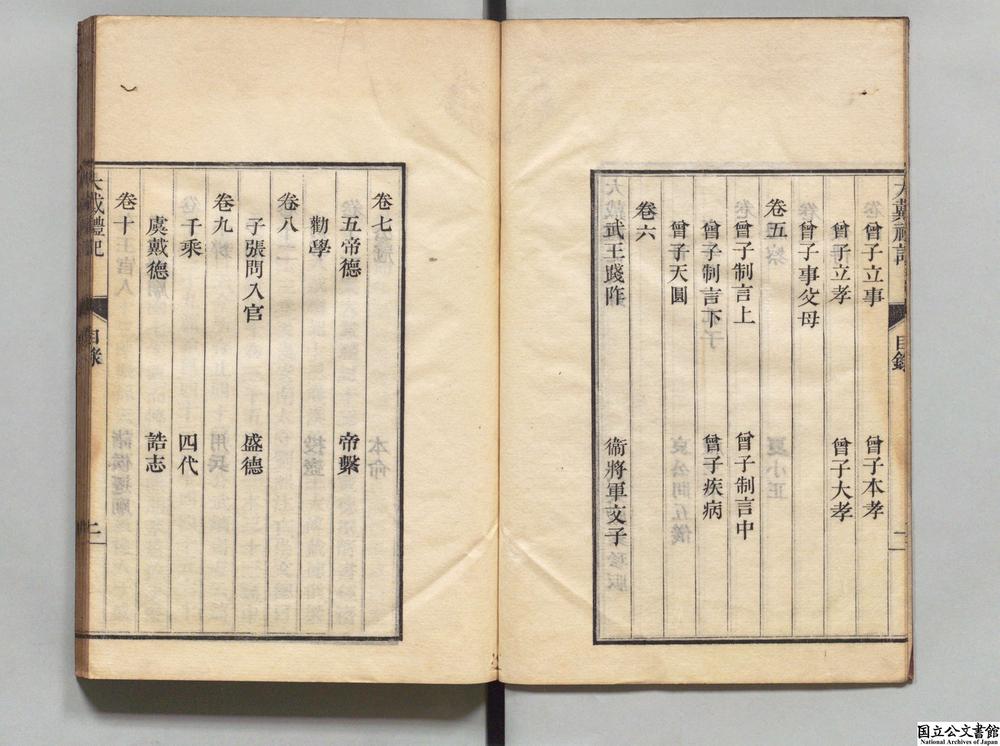 大戴禮記 目錄
曾子立事 曾子本孝
曾子立孝 曾子大孝
曾子事父母
卷五
曾子制言上 曾子制言中
曾子制言下 曾子疾病
曾子天圓
卷六
武王踐阼 衞將軍文子
卷七
五帝德 帝繫
勸學
卷八
子張問入官 盛德
卷九
千乘 四代
虞戴德 誥志
卷十
大戴禮記 目錄 二
国立公文書館
National Archives of Japan